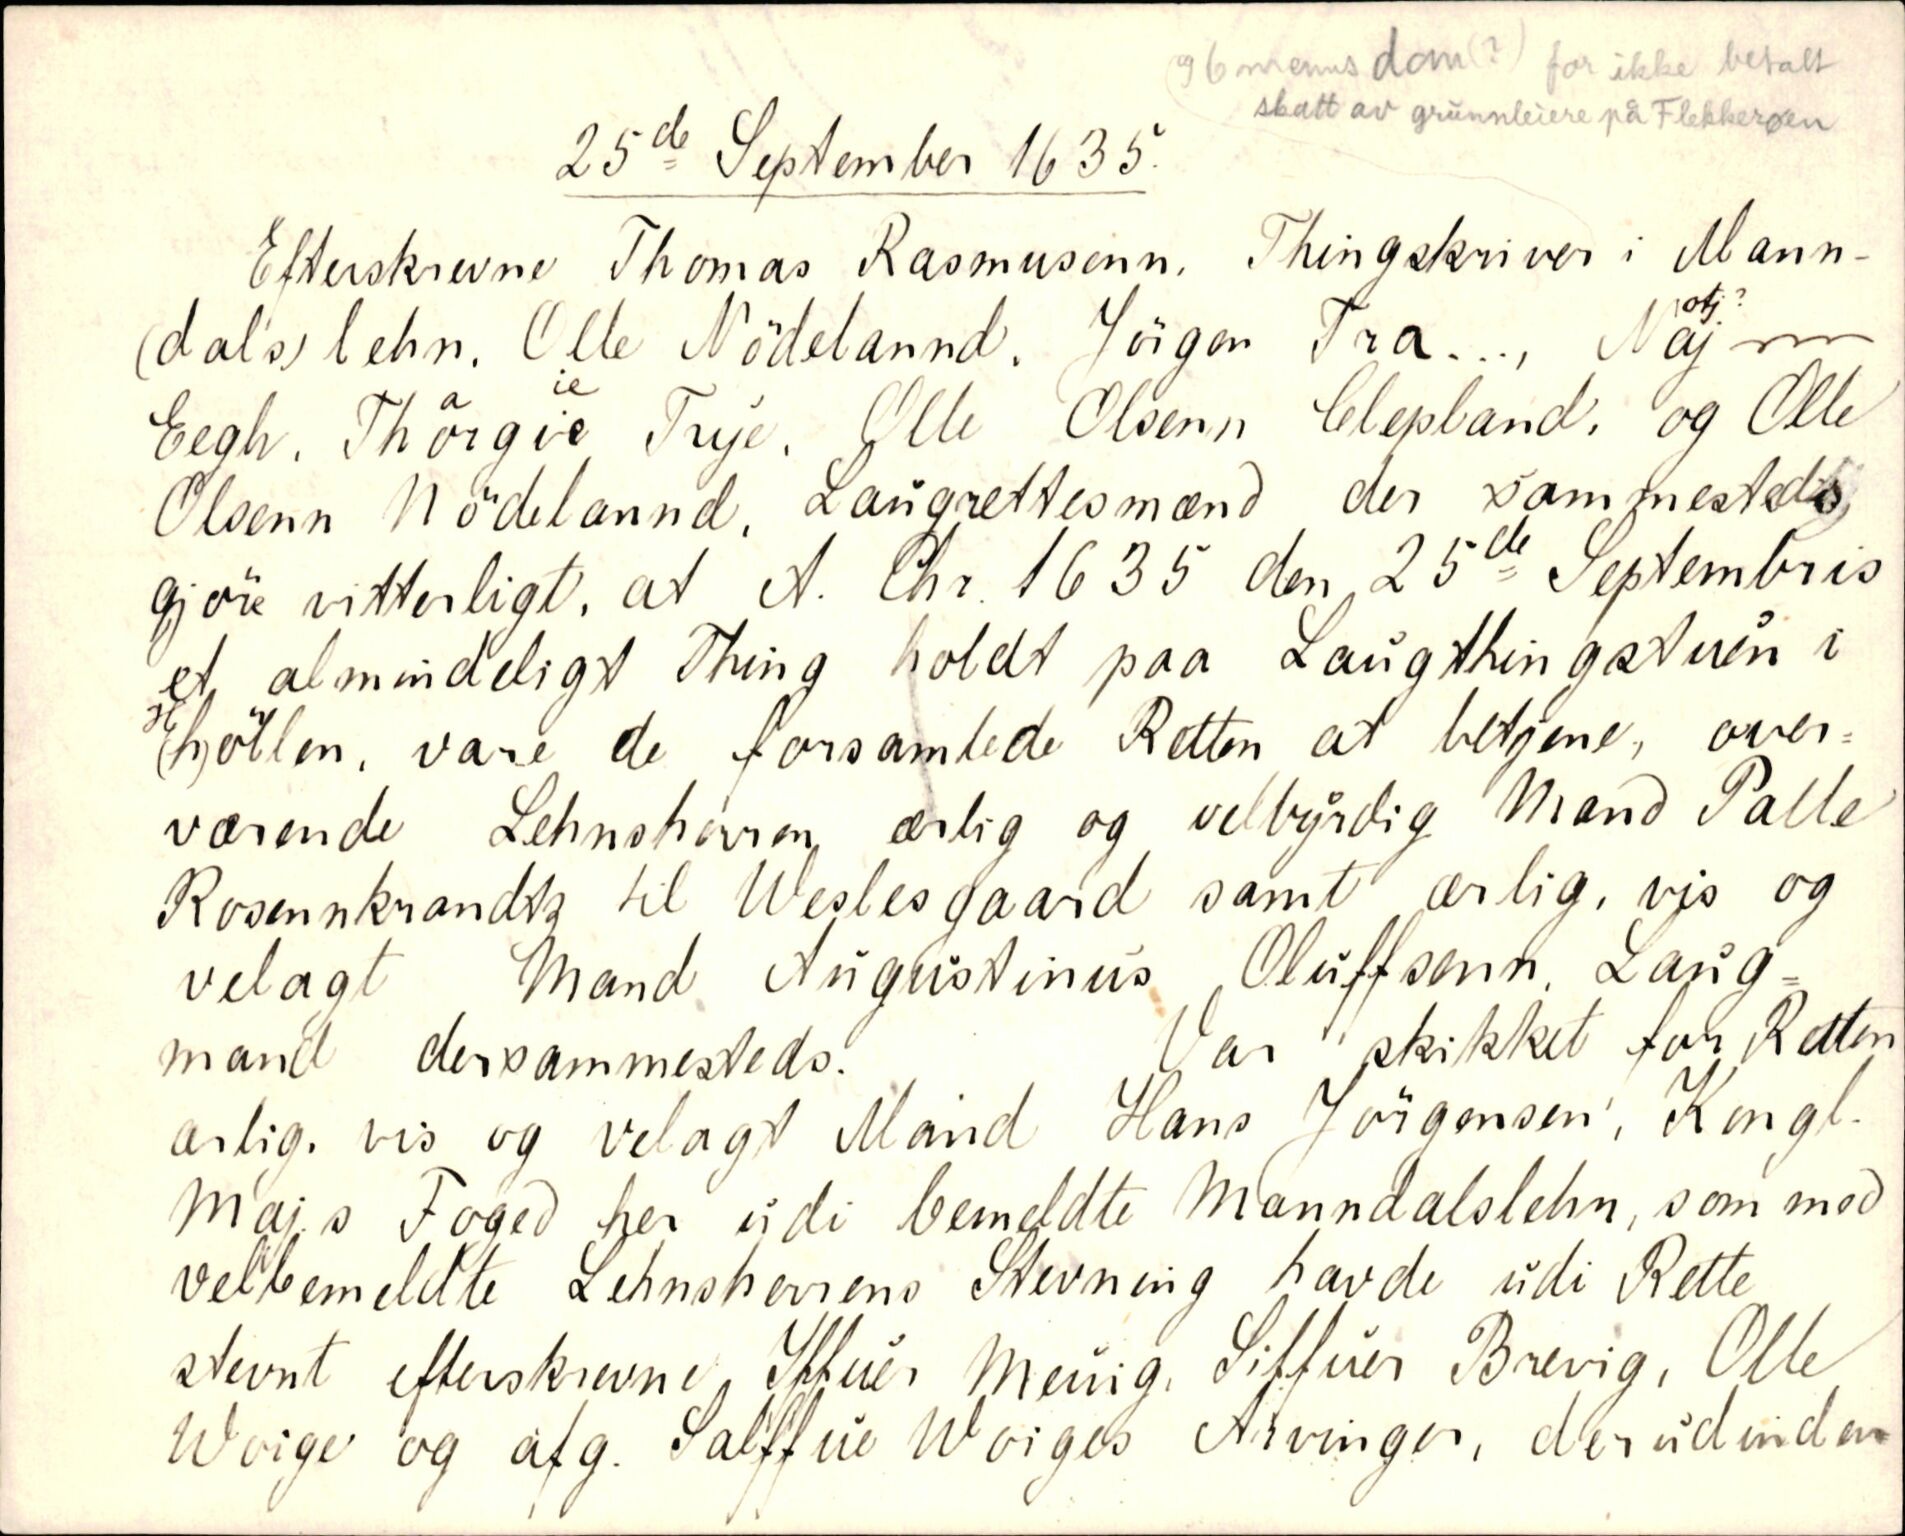 6 menns dom(?) for ikke betalt
skatt av grunnleiere på Flekkerøen
25de September 1635.
Efterskrevne Thomas Rasmusenn, Thingskriver i Mann-
(dals) lehn, Olle Nödelannd, Jörgen Tra..., Naj
otj?
Eegh, Thörgie Trye, Olle Olsenn Clepland, og Olle
a ie
Olsenn Nödelannd, Laugrettesmænd der sammesteds
gjöre vitterligt, at A. Chr. 1635 den 25de Septembris
et almindeligt Thing holdt paa Laugthingstuen i
(h)öllen, vare de forsamlede Retten at betjene, over=
værende Lehnsherren ærlig og velbyrdig Mand Palle
Rosennkrandtz til Weslesgaard samt ærlig, vis og
velagt Mand Augustinus Oluffsenn, Laug=
mand dersammesteds. Var skikket for Retten
ærlig, vis og velagt Mand Hans Jörgensen, Kongl.
Maj.s Foged her udi bemeldte Manndalslehn, som med
velbemeldte Lehnsherrens Stevning havde udi Rette
stevnt efterskrevne Iffuer Meuig, Siffuer Brevig, Olle
Woige og afg. Salffue Woiges Arvinger, derudinden